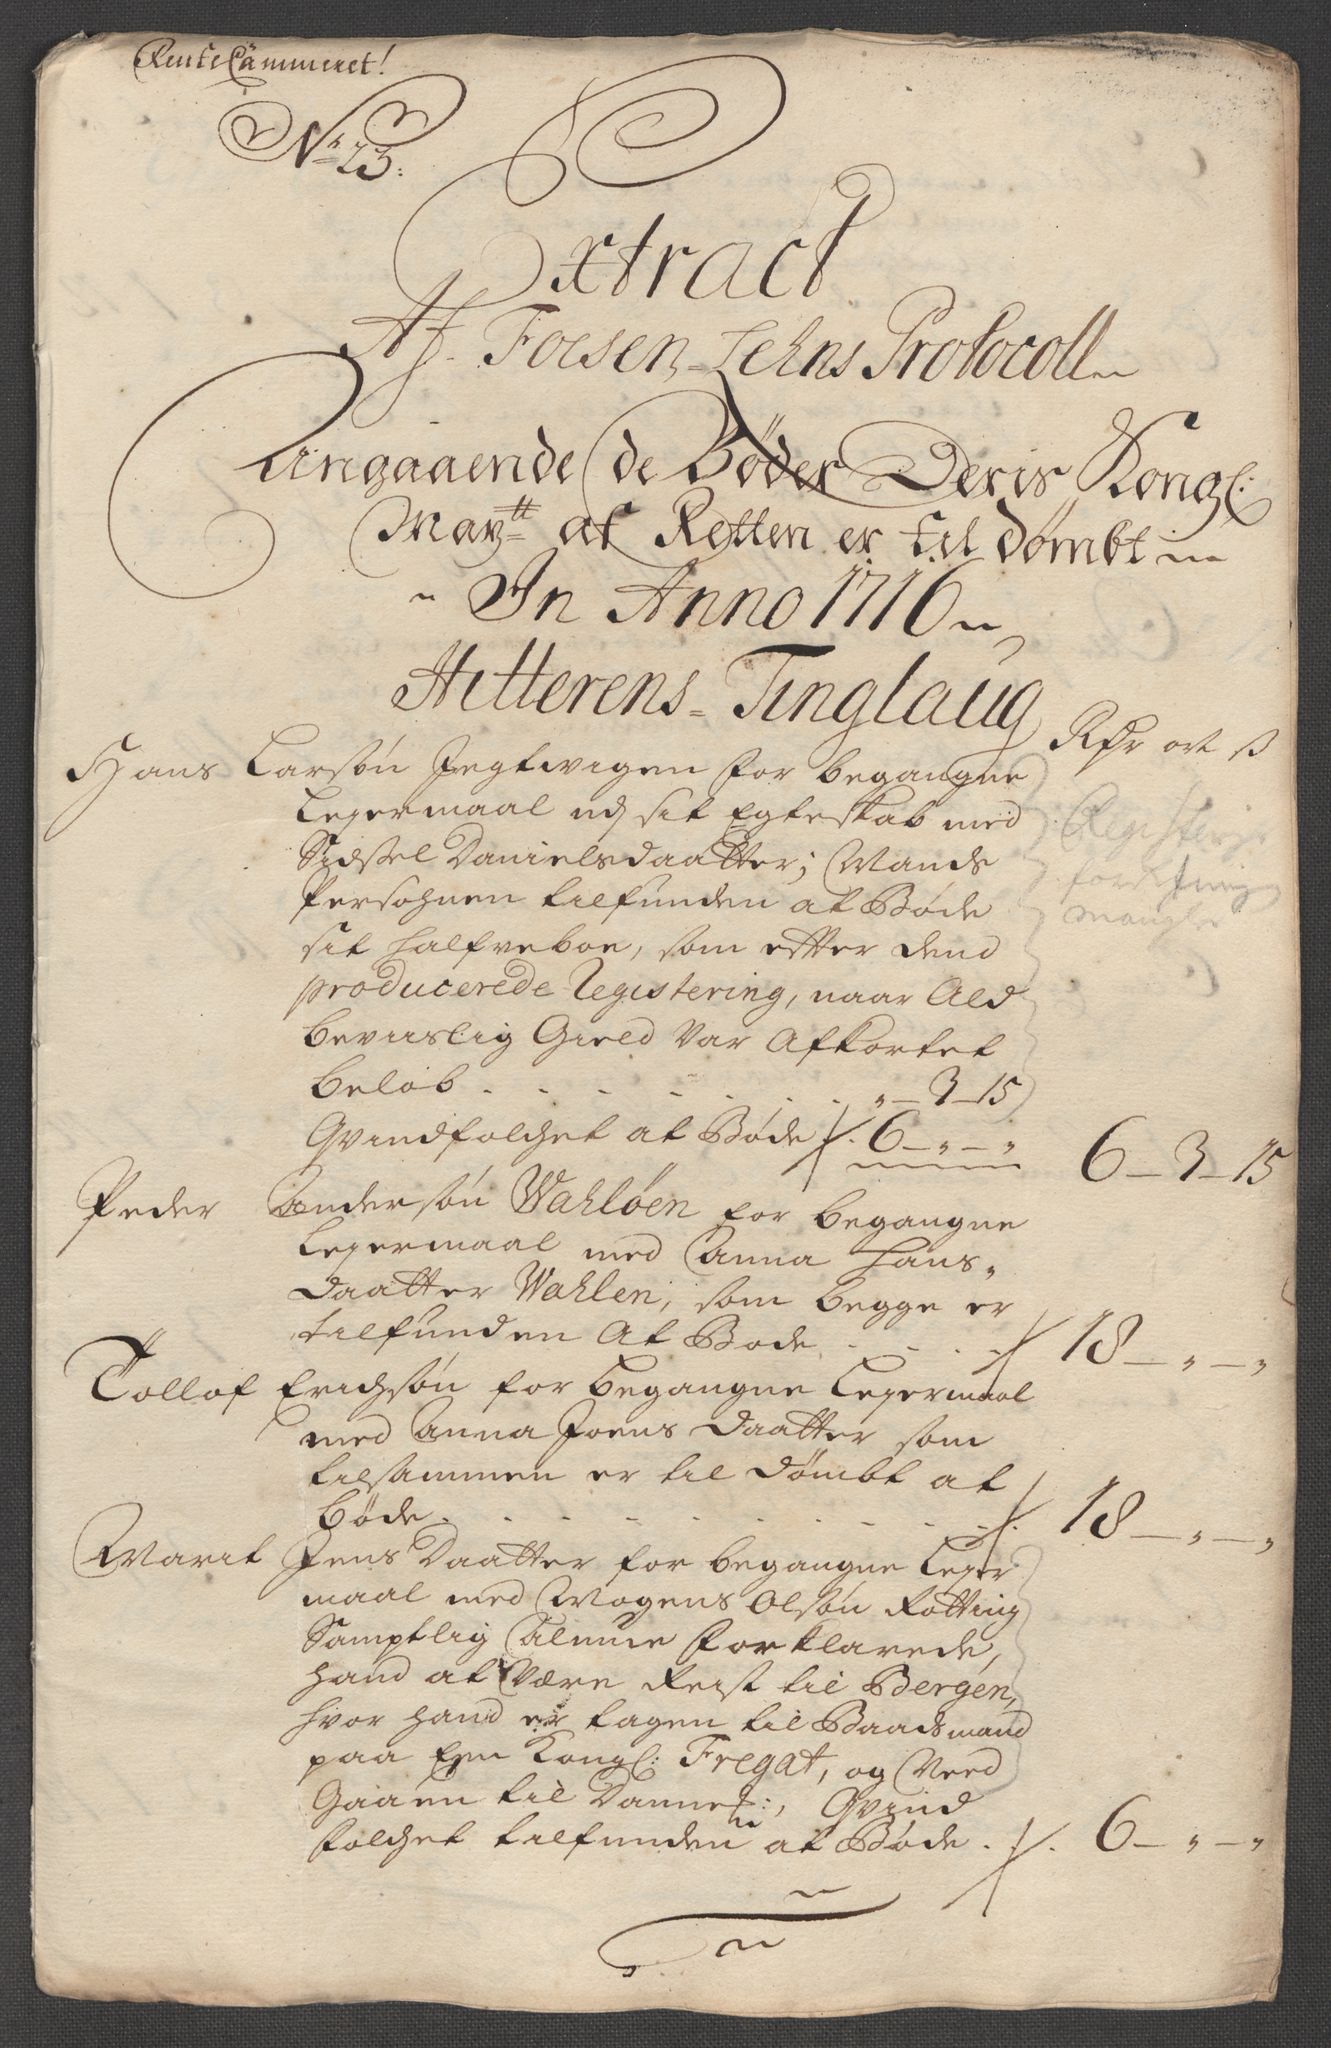 RenteCammeret!
No 23:
Extract
Af Foesen-Lehns Protocoll
Angaaende de Bøder Deris Kongl:
Maytt af Retten er til dømbt
In Anno 1716
Hitterens-Tinglaug
Rdr ort s
Hans Larsøn Jegtwigen for begangne
Leyermaal ud sit Egteskab med
Sidsel Danielsdaatter; Mands
Persohnen tilfunden at Bøde
sit halfveboe, som efter dend
producerede Registering, naar Ald
beviislig Gield Var Afkortet
beløb . . . . . . . „ – 3 – 15
Qvindfolchet at Bøde 6 – „ – „ 6 – 3 – 15
Registerings
forretning
mangler
Peder Andersøn Wahløen for begangne
Leyermaal med Anna Hans-
daatter Wahlen, som begge er
tilfunden At Bøde . . . . 18 – „ – „
Tollof Erichsøn for begangne Leyermaal
med Anna Joens daatter som
tilsammen er til dømbt at
bøde . . . . . . . . . 18 – „ – „
Marit Jens Daatter for begangne Leyer
maal med Mogens Olsøn Rotting
Samptlig Almue forklarede,
hand at Være Reist til Bergen,
hvor hand er tagen til Baadsmand
paa Een Kongl: Fregat, og Veed
Gaaen til Danne:, Qvind
folchet tilfunden at Bøde . 6 – „ – „